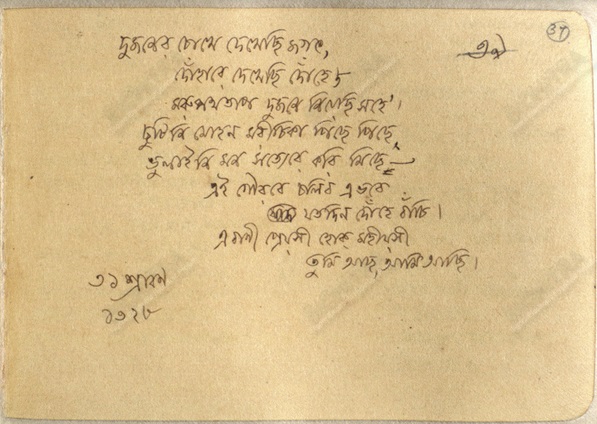 37
দুজনের চোখে দেখেছি জগৎ,
দোঁহারে দেখেছি দোঁহে;
মরুপথতাপ দুজনে নিয়েছি সহে'।
ছুটিনি মোহন মরীচিকা পিছে পিছে,
ভুলাইনি মন সত্যেরে করি মিছে—
এই গৌরবে চলিব এ ভবে
যতদিন দোঁহে বাঁচি।
এ বাণী প্রেয়সী হোক মহীয়সী
তুমি আছ, আমি আছি।
৩১ শ্রাবণ